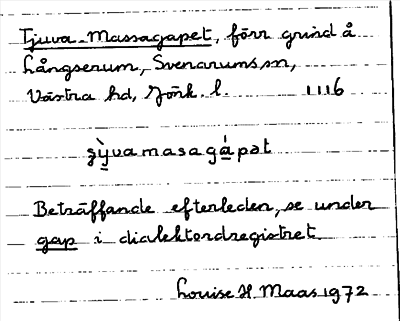 Tjuva-Massagapet, förr grind å
Långserum, Svenarums sn,
Västra hd, Jönk. l. 1116
ȳ̀vamasagápət
Beträffande efterleden, se under
gap i dialektordregistret.
Louise H. Maas 1972